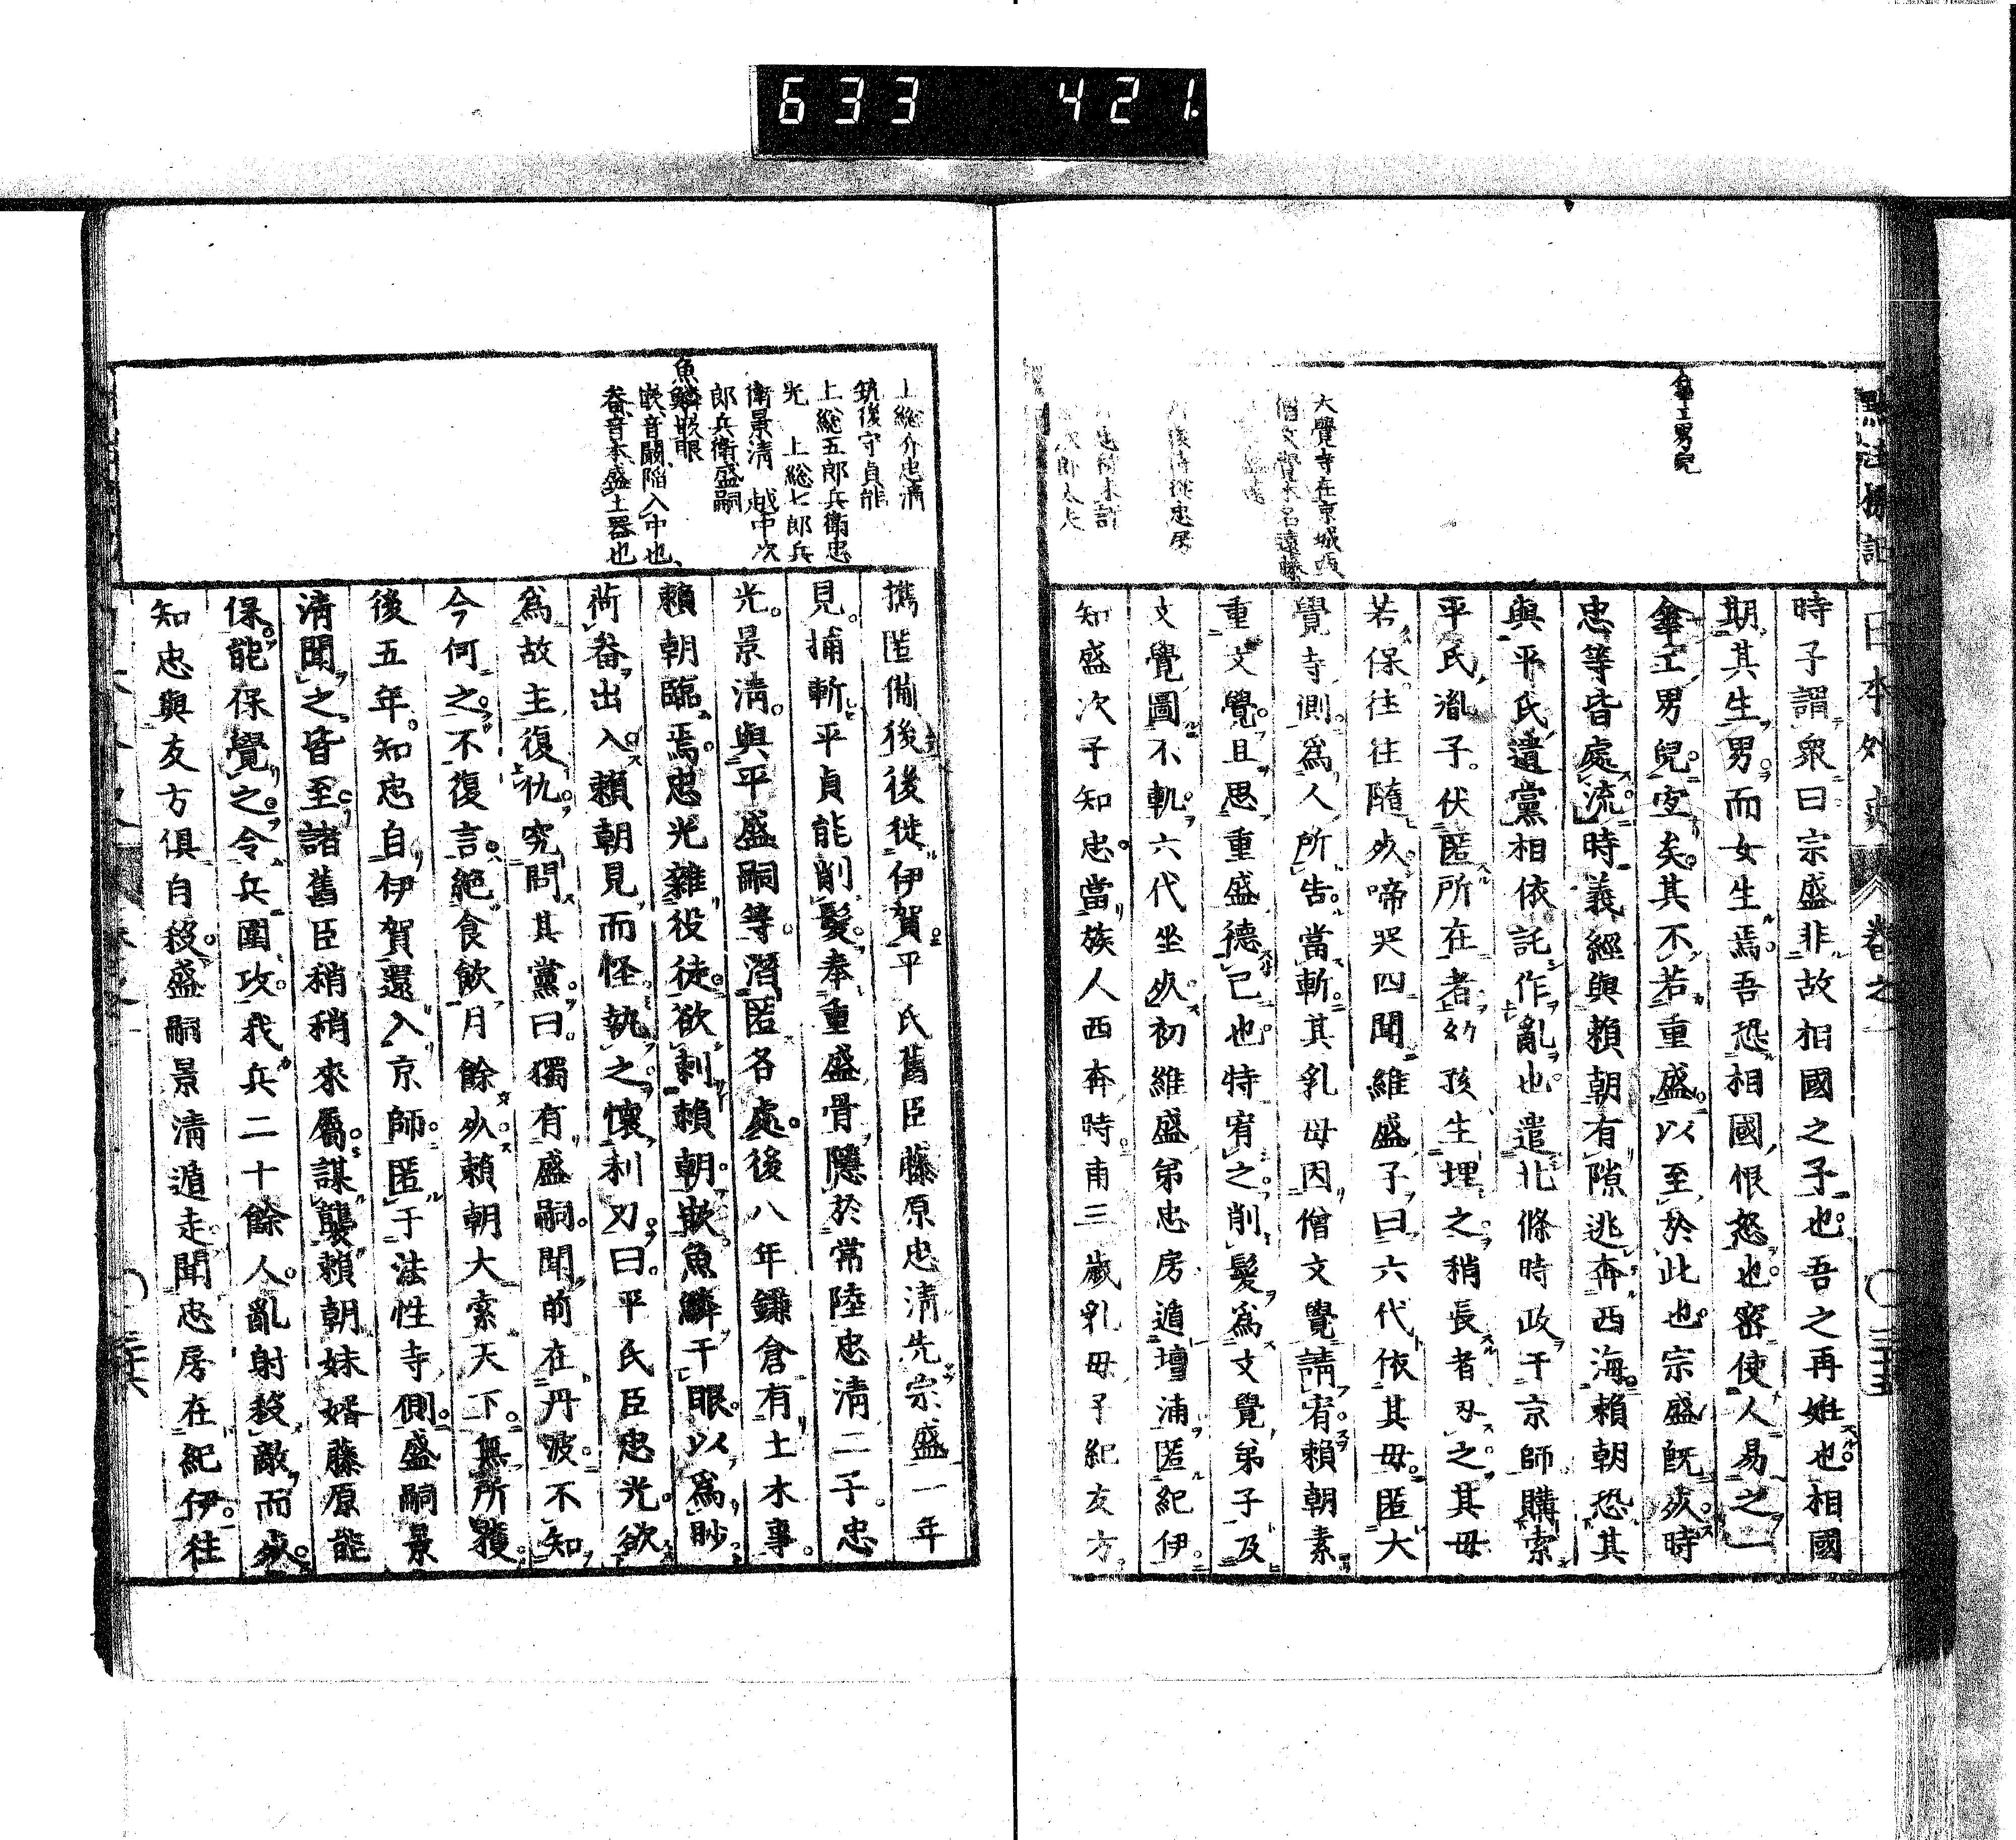 633 421.
日本外史 卷之一 三十五
傘工男兒
大覺寺在京城西
僧文覺本名遠藤
時子謂衆曰宗盛非故相國之子也吾之再姙也相國
期其生男而女生焉吾恐相國恨怒也密使人易之一
傘工男兒定矣其不若重盛以至於此也宗盛既死時
忠等皆處流時義經與賴朝有隙逃奔西海賴朝恐其
與平氏遺黨相依託作亂也遣北條時政于京師購索
平氏胤子伏匿所在者幼孩生埋之稍長者刃之其母
若保往往隨死啼哭四聞維盛子曰六代依其母匿大
覺寺側爲人所告當斬其乳母因僧文覺請宥賴朝素
重文覺且思重盛德己也特宥之削髮爲文覺弟子及
文覺圖不軌六代坐死初維盛弟忠房遁壇浦匿紀伊
知盛次子知忠當族人西奔時甫三歲乳母子紀友方
上総介忠清
筑後守貞能
上総五郎兵衛忠
光 上総七郎兵
衛景清 越中次
郎兵衛盛嗣
魚鱗嵌眼
嵌音闞陷入中也
畚音本盛土器也
攜匿備後後徙伊賀平氏舊臣藤原忠清先宗盛一年
見捕斬平貞能削髮奉重盛骨隱於常陸忠清二子忠
光景清與平盛嗣等潛匿各處後八年鎌倉有土木事
賴朝臨焉忠光雜役徒欲刺賴朝嵌魚鱗干眼以爲眇
荷畚出入賴朝見而怪執之懷利刃曰平氏臣忠光欲
爲故主復仇究問其黨曰獨有盛嗣聞前在丹波不知
今何之不復言絕食飮月餘死賴朝大索天下無所獲
後五年知忠自伊賀還入京師匿于法性寺側盛嗣景
清聞之皆至諸舊臣稍稍來屬謀襲賴朝妹婿藤原能
保能保覺之令兵圍攻我兵二十餘人亂射殺敵而死
知忠與友方俱自殺盛嗣景清遁走聞忠房在紀伊往